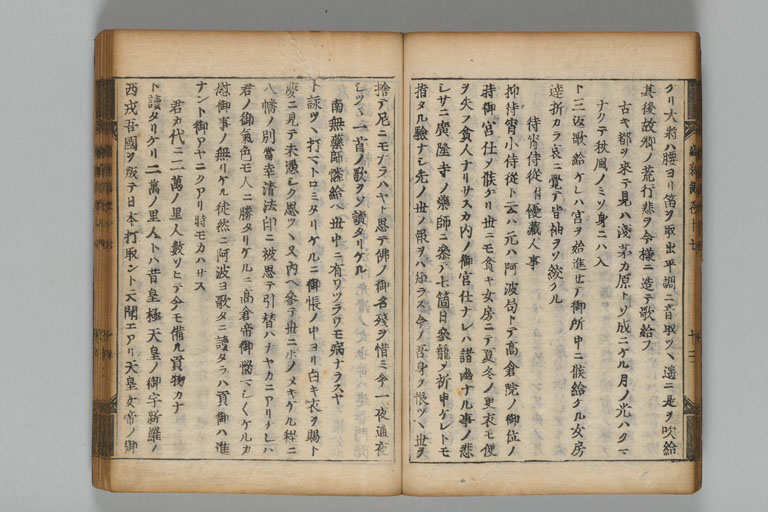 クリ大将ハ腰ヨリ笛ヲ取出平調ニ音取ツヽ遥ニ是ヲ吹給
其後故郷ノ荒行悲ヲ今様ニ造テ歌給フ
古キ都ヲ來テ見ハ淺茅カ原トソ成ニケル月ノ光ハクマ
ナクテ秋風ノミソ身ニハ入
ト三返歌給ケレハ宮ヲ始進セテ御所中ニ候給ケル女房
達折カラ哀ニ覺テ皆袖ヲソ絞ケル
待宵侍從付優藏人事
抑待宵小侍從ト云ハ元ハ阿波局トテ高倉院ノ御位ノ
時御宮仕シテ候ケリ世ニモ貪キ女房ニテ夏冬ノ更衣モ便
ヲ失フ貪人ナリサスカ内ノ御宮仕ナレハ諸幽ナル事ノ悲
シサニ廣隆寺ノ藥師ニ参テ七箇日参籠シテ祈申ケレトモ
指タル驗ナシ先ノ世ノ報ヲハ知ラス今ノ吾身ヲ恨ツヽ世ヲ
捨テ尼ニモナラハヤト思テ佛ノ御名殘ヲ惜ミ今一夜通夜
シツヽ一首ノ歌ヲソ讀タリケル
南無藥師憐給ヘ世中ニ有ワツラフモ病ナラスヤ
ト詠ツヽ打マトロミタリケルニ御帳ノ中ヨリ白キ衣ヲ賜ト
慶ニ見テ末憑シク思ツヽ又内ヘ参テ世ニホノメキケル程ニ
八幡ノ別當幸清法印ニ被思テ引替ハナヤカニアリケレハ
君ノ御氣色モ人ニ勝タリケルニ高倉帝御惱マシ〱ケルカ
慰御事ノ無リケル徒然ニ阿波ヨ歌タニ讀タラハ貢御ハ進
ナント御アヤニクアリ時モカハサス
君カ代ハ二萬ノ里人數ソヒテ今モ備ル貢物カナ
ト讀タリケリ二萬ノ里人トハ昔皇極天皇ノ御宇新羅ノ
西戎吾國ヲ叛テ日本打取ント云聞エアリ天皇女帝ノ御